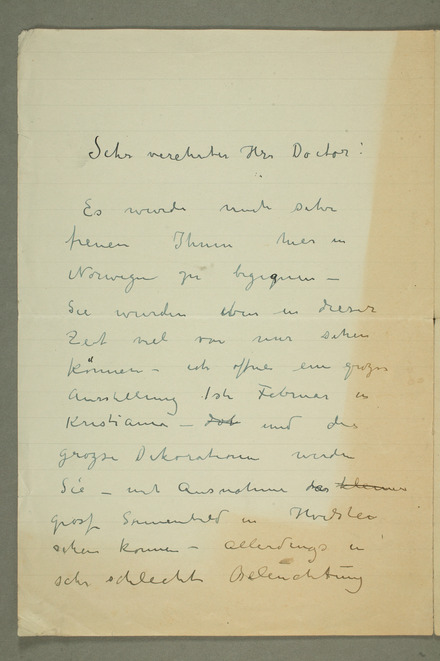 Sehr verehrter Herr Doctor!
Es würde mich sehr
freuen Ihnen hier in
Norwegen zu begegnen –
Sie würden eben in dieser
Zeit viel von mir sehen
können – ich öffne eine grosse
Ausstellung 1ste Februar in
Kristiania – dort und die
grosse Dekorationen werden
Sie – mit Ausnahme das kleines
gross Sonnenbild in
sehen können – allerdings in
sehr schlechte Beleuchtung